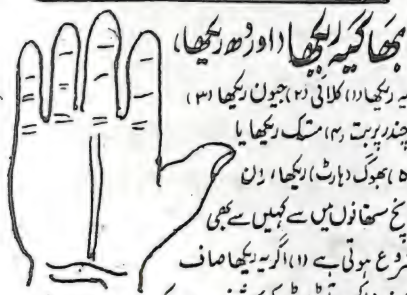 بھاگیہ ریکھا (اوردھ ریکھا)
یہ ریکھا (۱) کلائی (۲) جیون ریکھا (۳)
چندر پربت (۴) متک ریکھا یا
(۵) بھوگ (ہارٹ) ریکھا، ان
پانچ ستھانوں میں سے کہیں سے بھی
شروع ہوتی ہے (۱) اگر یہ ریکھا صاف